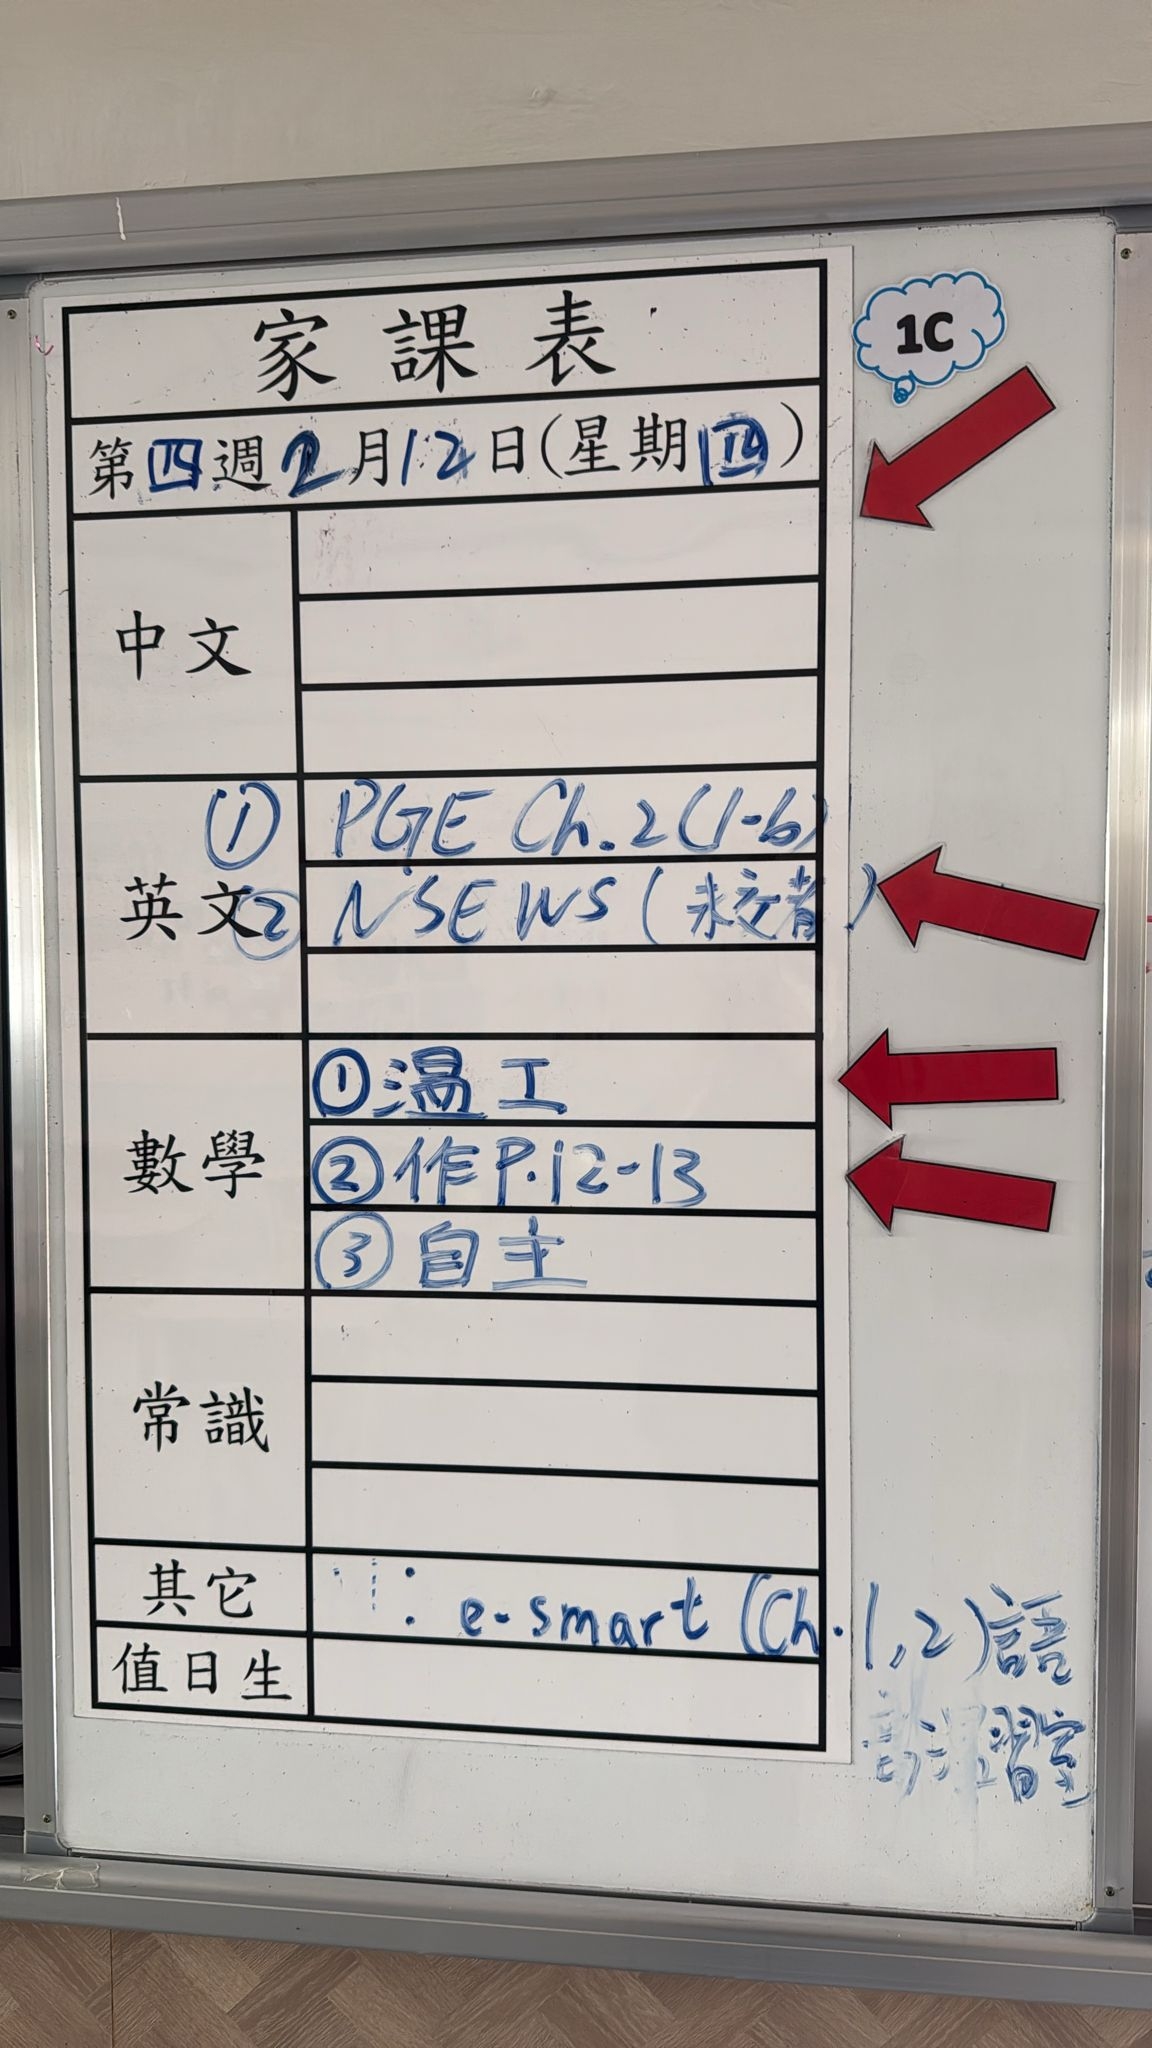 家課表
1C
第四週2月12日(星期四)
中文
英文
① PGE Ch.2(1-6)
② NSE WS (未交者)
數學
①溫工
②作P.12-13
③自主
常識
其它
: e-smart (Ch.1,2)語
習室
值日生